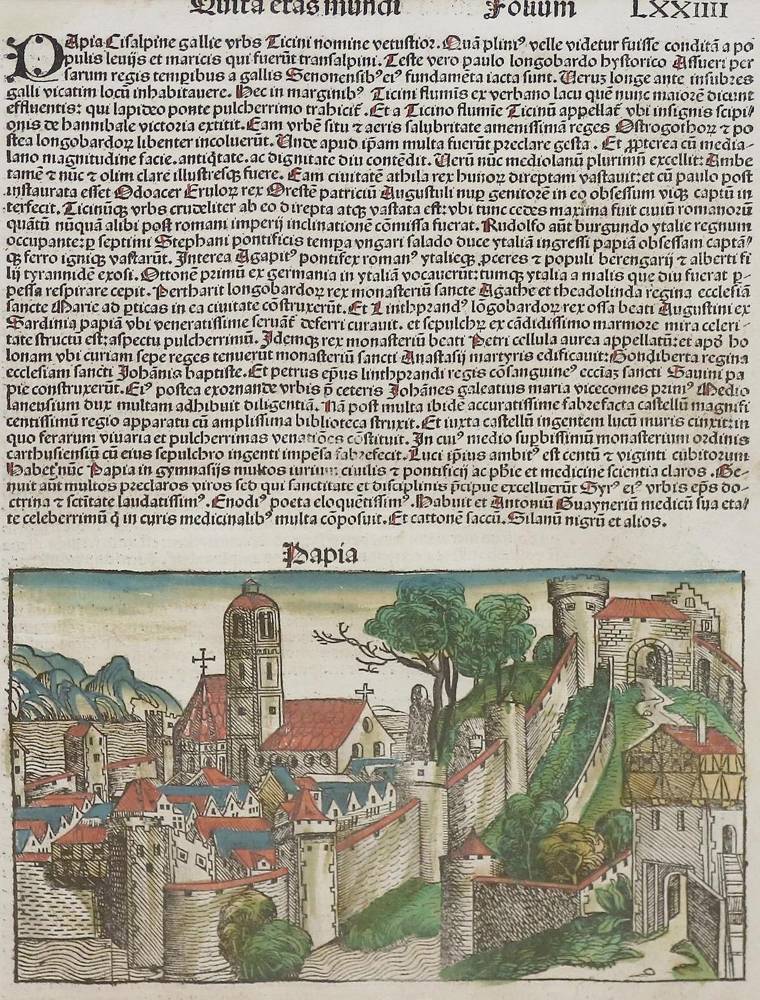 Quinta etas mundi Folium LXXIIII
PApia Cisalpine gallie vrbs Ticini nomine vetustior. Quã pliniꝰ velle videtur fuisse conditã a po
pulis leuijs et maricis qui fuerũt transalpini. Teste vero paulo longobardo hystorico Assueri per
sarum regis temporibus a gallis Senonensibꝰ eiꝰ fundamẽta iacta sunt. Uerus longe ante insubres
galli vicatim locũ inhabitauere. Hec in marginibꝰ Ticini flumis ex verbano lacu quẽ nunc maiorẽ dicunt
effluentis: qui lapideo ponte pulcherrimo trahicit̃. Et a Ticino flumie Ticinũ appellat̃ vbi insignis scipi/
onis de hannibale victoria extitit. Eam vrbẽ situ ⁊ aeris salubritate amenissimã reges Ostrogothoꝝ ⁊ po
stea longobardoꝝ libenter incoluerũt. Unde apud ip̃am multa fuerũt preclare gesta. Et ꝓpterea cũ media/
lano magnitudine facie. antiq̃tate. ac dignitate diu contẽdit. Uerũ nũc mediolanũ plurimũ excellit: Ambe
tamẽ ⁊ nũc ⁊ olim clare illustresqꝫ fuere. Eam ciuitatẽ athila rex hunoꝝ direptam vastauit: et cũ paulo post
instaurata esset Odoacer Eruloꝝ rex Orestẽ patriciũ Augustuli nuꝑ genitorẽ in eo obsessum viqꝫ captũ in
terfecit. Ticinũqꝫ vrbs crudeliter ab eo direpta atqꝫ vastata est: vbi tunc cedes maxima fuit ciuiũ romanorũ
quãtũ nũquã alibi post romani imperij inclinationẽ cõmissa fuerat. Rudolfo aũt burgundo ytalie regnum
occupante: ꝑ septimi Stephani pontificis tempa vngari salado duce ytaliã ingressi papiã obsessam captã/
qꝫ ferro igniqꝫ vastarũt. Interea Agapitꝰ pontifex romanꝰ ytaliciqꝫ ꝓceres ⁊ populi berengarij ⁊ alberti fi
lij tyrannidẽ exosi. Ottonẽ primũ ex germania in ytaliã vocauerũt: tumqꝫ ytalia a malis que diu fuerat ꝑ-
pessa respirare cepit. Pertharit longobardoꝝ rex monasteriũ sancte Agathe et theadolinda regina ecclesiã
sancte Marie ad p̃ticas in ea ciuitate cõstruxerũt. Et Linthprandꝰ lõgobardoꝝ rex ossa beati Augustini ex
Sardinia papiã vbi veneratissime seruãt̃ deferri curauit. et sepulchꝝ ex cãdidissimo marmore mira celeri-
tate structũ est: aspectu pulcherrimũ. Idemqꝫ rex monasteriũ beati Petri cellula aurea appellatũ: et apð ho
lonam vbi curiam sepe reges tenuerũt monasteriũ sancti Anastasij martyris edificauit: Gondiberta regina
ecclesiam sancti Johãnis baptiste. Et petrus ep̃us linthprandi regis cõsanguineꝰ eccãꝫ sancti Sauini pa
pie construxerũt. Eiꝰ postea exornande vrbis p̃ ceteris Johãnes galeatius maria vicecomes primꝰ Medio
lanensium dux multam adhibuit diligentiã. Nã post multa ibidẽ accuratissime fabrefacta castellũ magnifi
centissimũ regio apparatu cũ amplissima biblioteca struxit. Et iuxta castellũ ingentem lucũ muris cinxit: in
quo ferarum viuaria et pulcherrimas venatiões cõstituit. In cuiꝰ medio suꝑbissimũ monasterium ordinis
carthusiensiũ cũ eius sepulchro ingenti impẽsa fabrefecit. Luci ip̃ius ambitꝰ est centũ ⁊ viginti cubitorum
Habet nũc Papia in gymnasijs multos iurium ciuilis ⁊ pontificij ac ph̃ie et medicine scientia claros. Ge-
nuit aũt multos preclaros viros sed qui sanctitate et disciplinis p̃cipue excelluerũt Syrꝰ eiꝰ vrbis ep̃s do-
ctrina ⁊ sc̃titate laudatissimꝰ. Enodiꝰ poeta eloquẽtissimꝰ. Habuit et Antoniũ Guayneriũ medicũ sua eta/
te celeberrimũ q̃ in curis medicinalibꝰ multa cõposuit. Et cattonẽ saccũ. Silanũ nigrũ et alios.
Papia